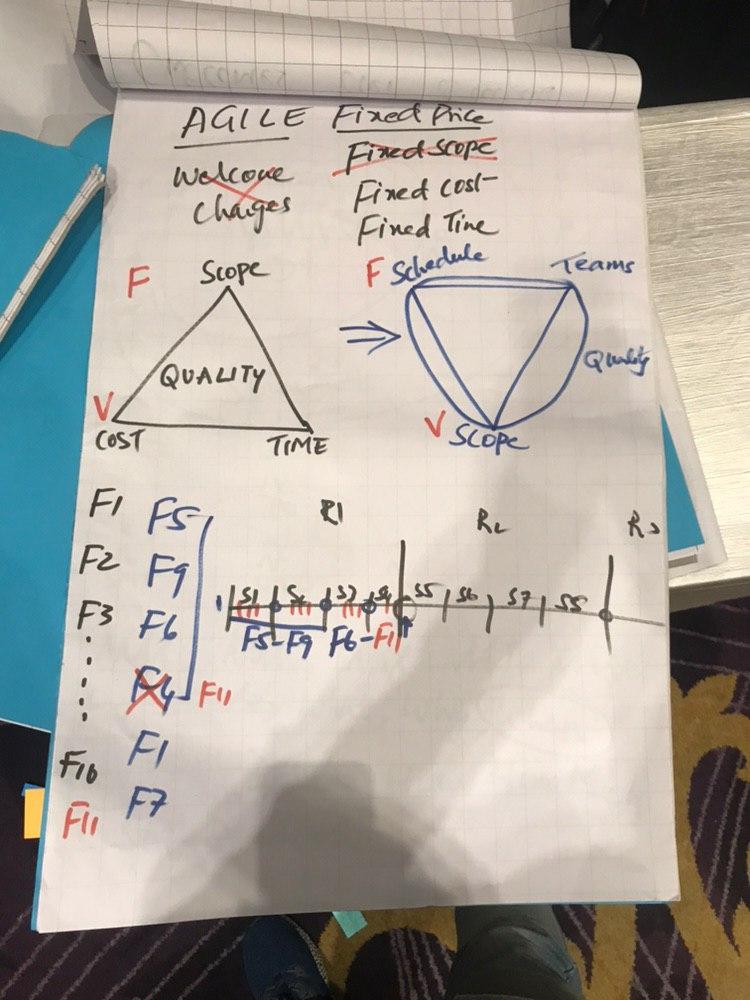 AGILE Fixed Price
Welcome Fixed scope
Changes Fixed cost
Fixed Time
F Scope
QUALITY
V
COST TIME
F Schedule Teams
Quality
V Scope
F1 F5
F2 F9
F3 F6
F4 F11
F1
F10
F11 F7
R1 R2 R3
S1 S2 S3 S4 S5 S6 S7 S8
F5-F9 F6-F11